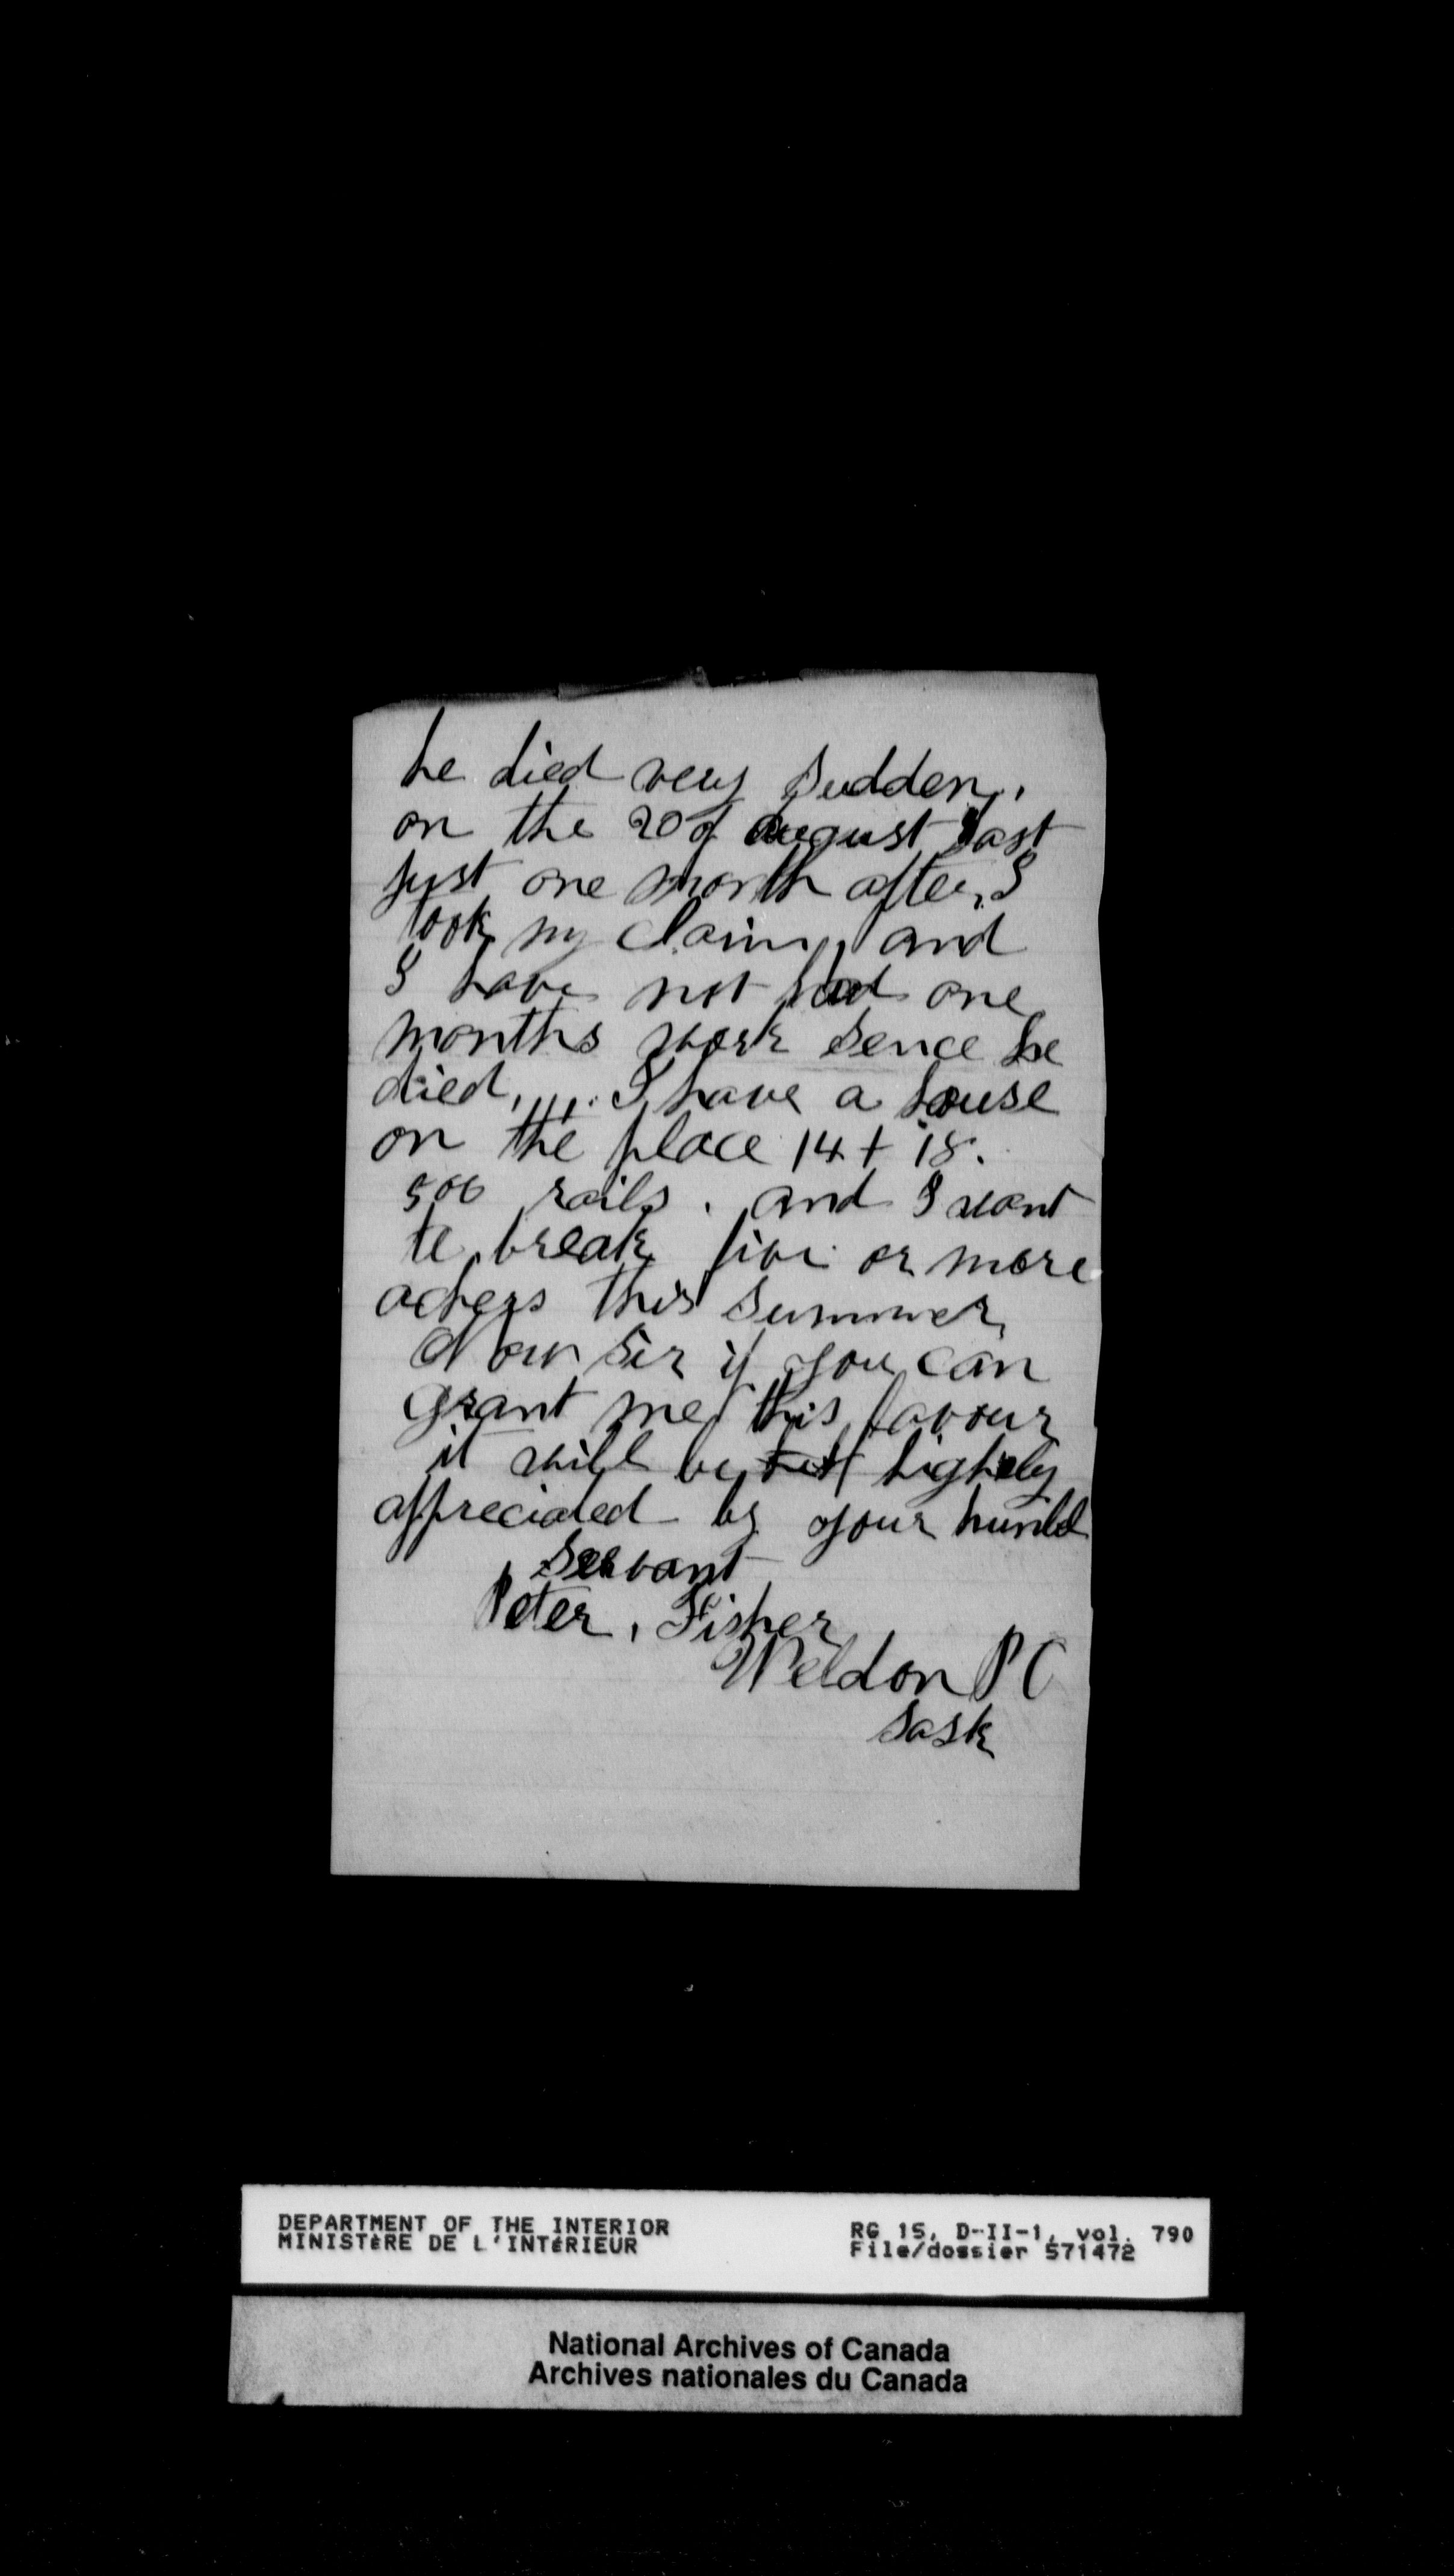 he died very sudden,
on the 20 of august last
just one month after I
took my claim, and
I have not had one
months work sence he
died,,,. I have a house
on the place 14 + 18.
500 rails. and I want
te break five or more
achers this summer
Now sir if you can
grant me this favour
it will be highely
appreciated by your humbl
servant
Peter, Fisher
Weldon PO
Sask
DEPARTMENT OF THE INTERIOR
MINISTÈRE DE L'INTÉRIEUR
RG 15, D-II-1, vol. 790
File/dossier 571472
National Archives of Canada
Archives nationales du Canada